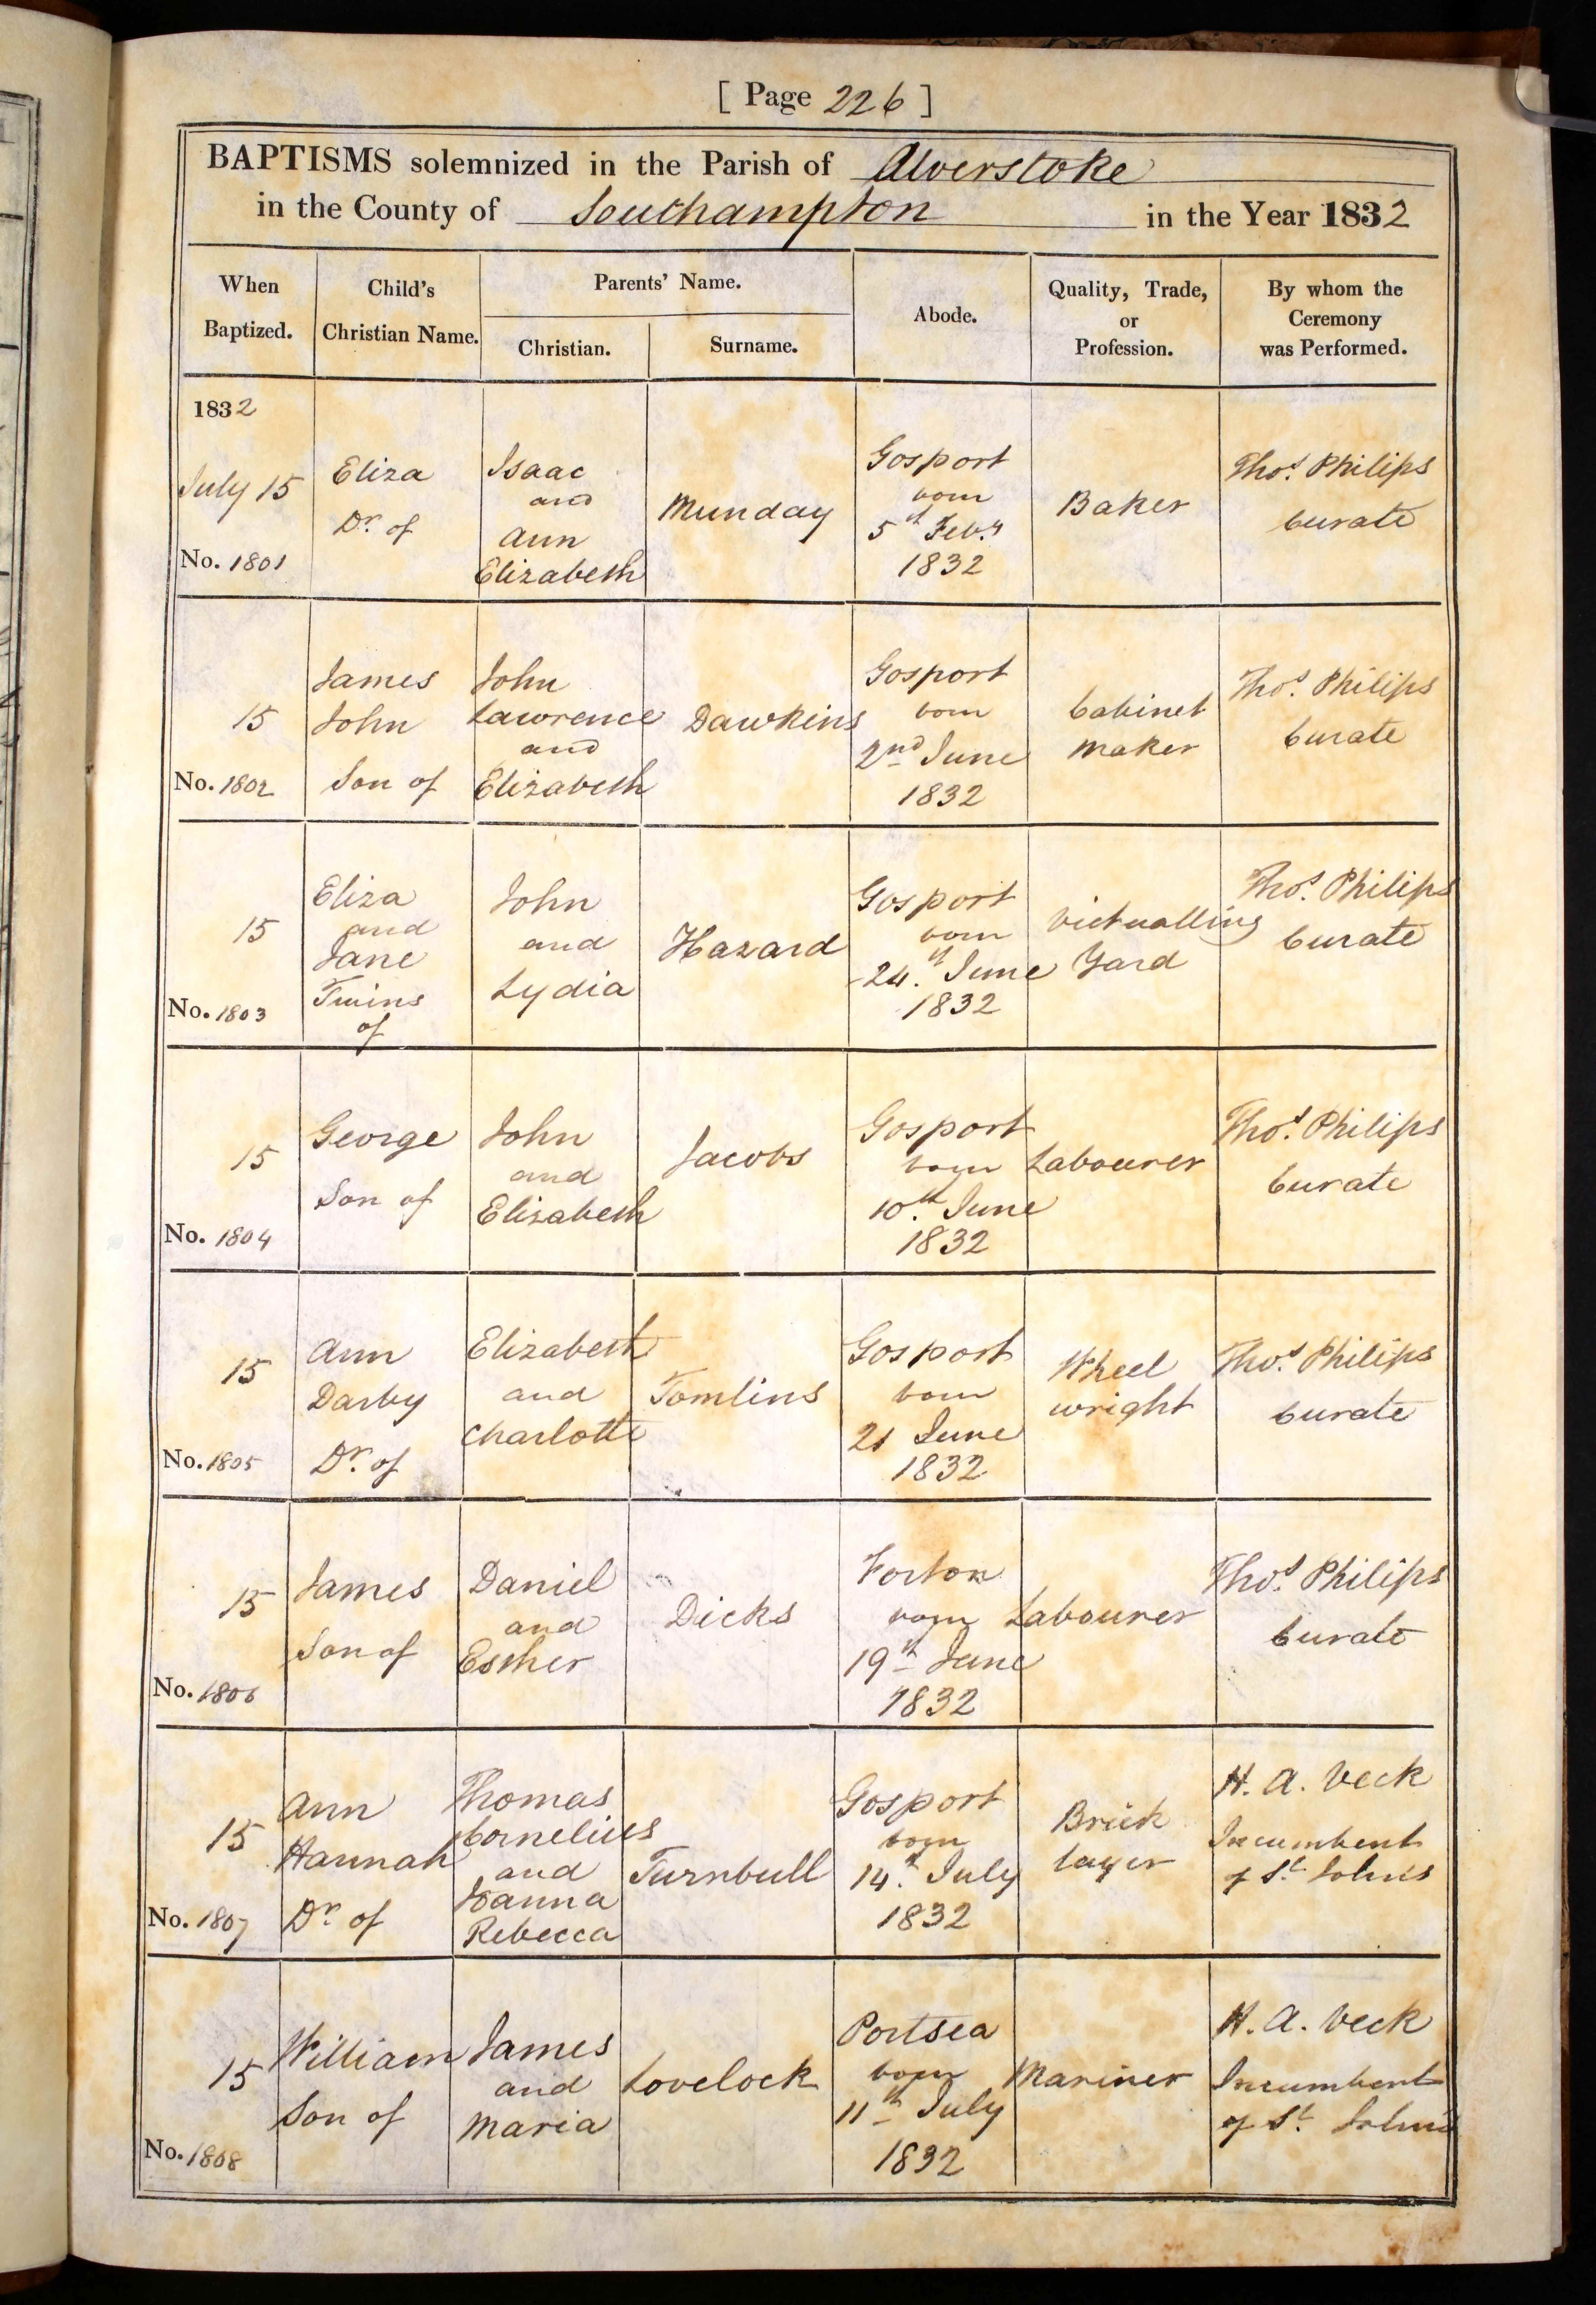 [ Page 226 ]
BAPTISMS solemnized in the Parish of Alverstoke
in the County of Southampton in the Year 1832
When Baptized.
Child's Christian Name.
Parents' Name.
Christian.
Surname.
Abode.
Quality, Trade, or Profession.
By whom the Ceremony was Performed.
1832
July 15
No. 1801
Eliza
Dr. of
Isaac
and
Ann
Elizabeth
Munday
Gosport
born
5th Feby
1832
Baker
Thos. Philips
Curate
15
No. 1802
James
John
Son of
John
Lawrence
and
Elizabeth
Dawkins
Gosport
born
2nd June
1832
Cabinet
Maker
Thos. Philips
Curate
15
No. 1803
Eliza
and
Jane
Twins
of
John
and
Lydia
Hazard
Gosport
born
24th June
1832
Victualling
Yard
Thos. Philips
Curate
15
No. 1804
George
Son of
John
and
Elizabeth
Jacobs
Gosport
born
10th June
1832
Labourer
Thos. Philips
Curate
15
No. 1805
Ann
Darby
Dr. of
Elizabeth
and
Charlotte
Tomlins
Gosport
born
21 June
1832
Wheel
wright
Thos. Philips
Curate
15
No. 1806
James
Son of
Daniel
and
Esther
Dicks
Forton
born
19th June
1832
Labourer
Thos. Philips
Curate
15
No. 1807
Ann
Hannah
Dr. of
Thomas
Cornelius
and
Rebecca
Turnbull
Gosport
born
14th July
1832
Brick
layer
H. A. Veck
Incumbent
of St. Johns
15
No. 1808
William
Son of
James
and
Maria
Lovelock
Portsea
born
11th July
1832
Mariner
H. A. Veck
Incumbent
of St. Johns